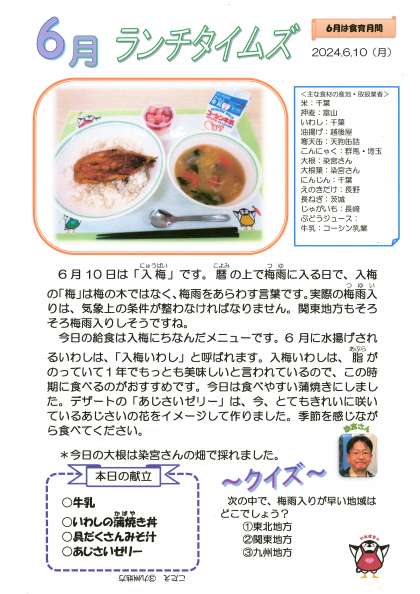 6月 ランチタイムズ
6月は食育月間
2024.6.10(月)
<主な食材の産地・取扱業者>
米:千葉
押麦:富山
いわし:千葉
油揚げ:越後屋
寒天缶:天狗缶詰
こんにゃく:群馬・埼玉
大根:染宮さん
大根葉:染宮さん
にんじん:千葉
えのきだけ:長野
長ねぎ:茨城
じゃがいも:長崎
ぶどうジュース:
牛乳:コーシン乳業
にゅうばい こよみ つゆ
6月10日は「入梅」です。暦の上で梅雨に入る日で、入梅
の「梅」は梅の木ではなく、梅雨をあらわす言葉です。実際の梅雨入
つゆい
りは、気象上の条件が整わなければなりません。関東地方もそろ
そろ梅雨入りしそうですね。
今日の給食は入梅にちなんだメニューです。6月に水揚げされ
るいわしは、「入梅いわし」と呼ばれます。入梅いわしは、脂が
あぶら
のっていて1年でもっとも美味しいと言われているので、この時
期に食べるのがおすすめです。今日は食べやすい蒲焼きにしまし
た。デザートの「あじさいゼリー」は、今、とてもきれいに咲い
ているあじさいの花をイメージして作りました。季節を感じなが
ら食べてください。
染宮さん
*今日の大根は染宮さんの畑で採れました。
本日の献立
○牛乳
かばや
○いわしの蒲焼き丼
○具だくさんみそ汁
○あじさいゼリー
こたえ ③九州地方
~クイズ~
次の中で、梅雨入りが早い地域は
どこでしょう?
①東北地方
②関東地方
③九州地方